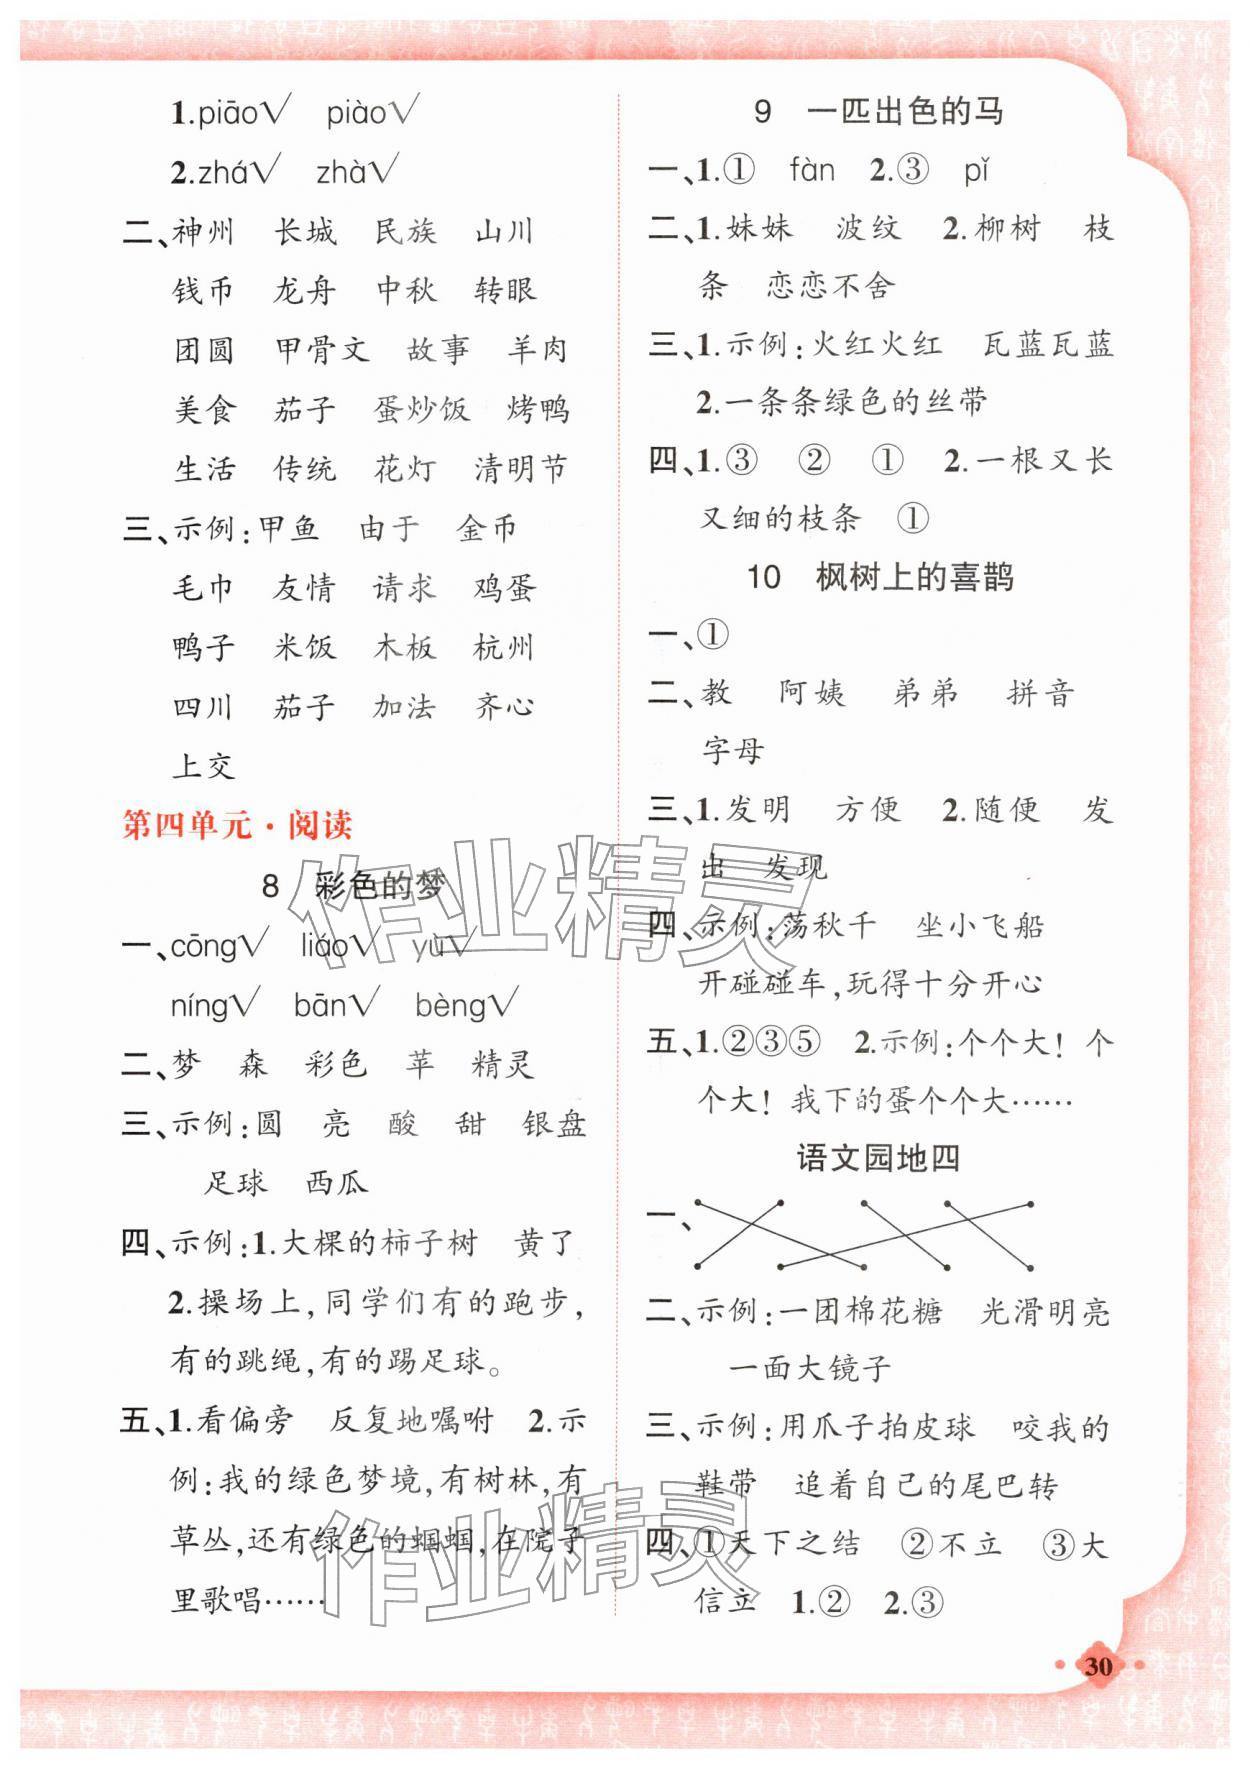 1.piāo√ piào√
2.zhá√ zhà√
二、神州 长城 民族 山川
钱币 龙舟 中秋 转眼
团圆 甲骨文 故事 羊肉
美食 茄子 蛋炒饭 烤鸭
生活 传统 花灯 清明节
三、示例:甲鱼 由于 金币
毛巾 友情 请求 鸡蛋
鸭子 米饭 木板 杭州
四川 茄子 加法 齐心
上交
第四单元·阅读
8 彩色的梦
一、cōng√ liáo√ yù√
níng√ bān√ bèng√
二、梦 森 彩色 苹 精灵
三、示例:圆 亮 酸 甜 银盘
足球 西瓜
四、示例:1.大棵的柿子树 黄了
2.操场上,同学们有的跑步,
有的跳绳,有的踢足球。
五、1.看偏旁 反复地嘱咐 2.示
例:我的绿色梦境,有树林,有
草丛,还有绿色的蝈蝈,在院子
里歌唱……
9 一匹出色的马
一、1.① fàn 2.③ pǐ
二、1.妹妹 波纹 2.柳树 枝
条 恋恋不舍
三、1.示例:火红火红 瓦蓝瓦蓝
2.一条条绿色的丝带
四、1.③ ② ① 2.一根又长
又细的枝条 ①
10 枫树上的喜鹊
一、①
二、教 阿姨 弟弟 拼音
字母
三、1.发明 方便 2.随便 发
出 发现
四、示例:荡秋千 坐小飞船
开碰碰车,玩得十分开心
五、1.②③⑤ 2.示例:个个大! 个
个大! 我下的蛋个个大……
语文园地四
一、
二、示例:一团棉花糖 光滑明亮
一面大镜子
三、示例:用爪子拍皮球 咬我的
鞋带 追着自己的尾巴转
四、①天下之结 ②不立 ③大
信立 1.② 2.③
30
作业精灵
作业精灵